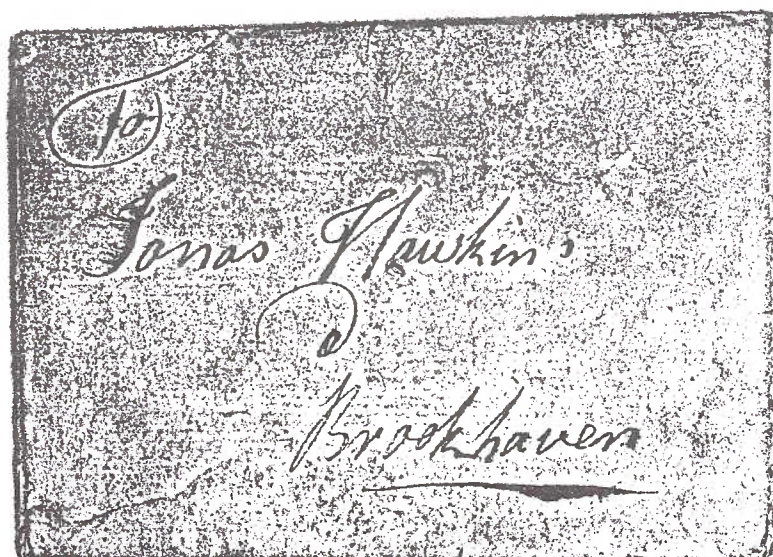 for
Jonas Hawkins
a
Brookhaven